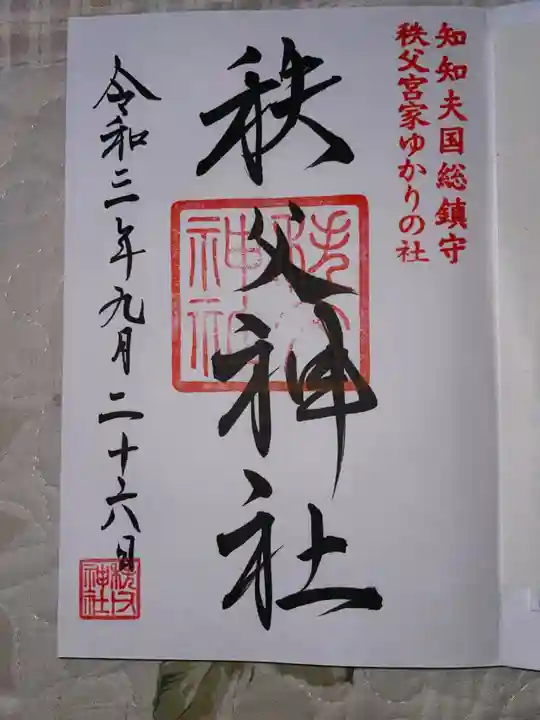 知知夫国総鎮守
秩父宮家ゆかりの社
秩父神社
秩父神社
令和三年九月二十六日
秩父神社